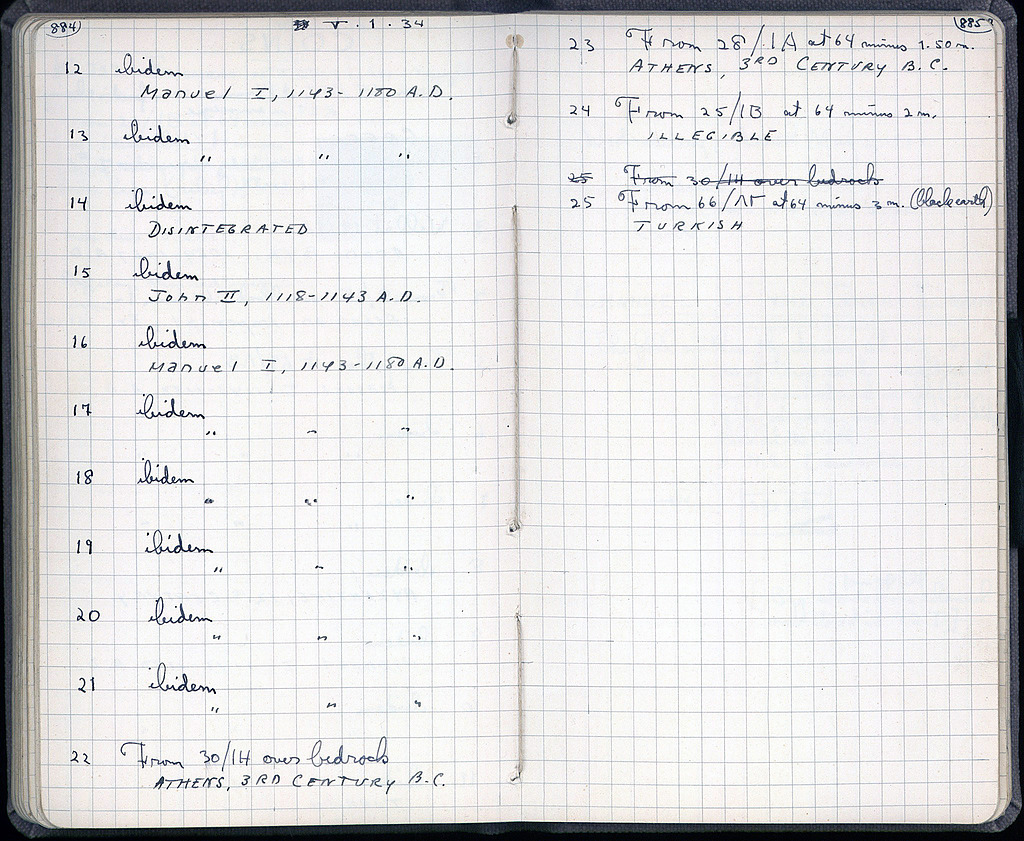 884
V . 1 . 34
12 ibidem
Manuel I, 1143-1180 A.D.
13 ibidem
" " "
14 ibidem
DISINTEGRATED
15 ibidem
John II, 1118-1143 A.D.
16 ibidem
Manuel I, 1143-1180 A.D.
17 ibidem
" " "
18 ibidem
" " "
19 ibidem
" " "
20 ibidem
" " "
21 ibidem
" " "
22 From 30/ΙΗ over bedrock
ATHENS, 3RD CENTURY B.C.
885
23 From 28/ΙΑ at 64 minus 1.50 m.
ATHENS, 3RD CENTURY B.C.
24 From 25/ΙΒ at 64 minus 2 m.
ILLEGIBLE
25 From 30/ΙΗ over bedrock
25 From 66/ΛΓ at 64 minus 3 m. (black earth)
TURKISH